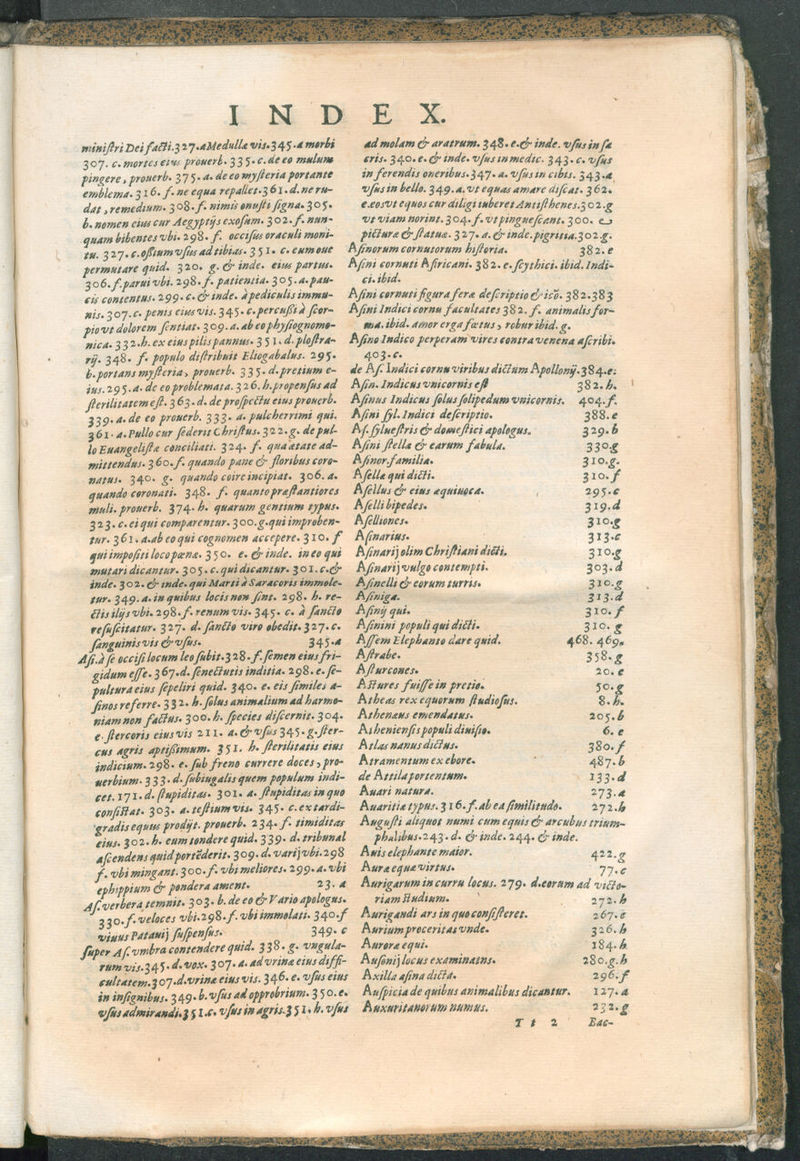 INDEX.
miniſtri Dei facti.327.a Medullæ vis.345.a morbi
307. c. mortes eius prouerb. 335. c. de eo mulum
pingere, prouerb. 375. a. de eo myſteria portante
emblema. 316. f. ne equa repallet.361.d. ne ru-
dat, remedium. 308. f. nimis onuſti ſigna. 305.
b. nomen eius cur Aegyptijs exoſum. 302. f. nun-
quam bibentes vbi. 298. f. occiſus oraculi moni-
tu. 327. c. oſsium vſus ad tibias. 351. c. cum oue
permutare quid. 320. g. & inde. eius partus.
306. f. parui vbi. 298. f. patientia. 305. a. pau-
cis contentus. 299. c. & inde. à pediculis immu-
nis. 307. c. penis eius vis. 345. c. percußi à ſcor-
pio vt dolorem ſentiat. 309. a. ab eo phyſiognomo-
nica. 332. h. ex eius pilis pannus. 351. d. ploſtra-
rij. 348. f. populo diſtribuit Eliogabalus. 295.
b. portans myſteria, prouerb. 335. d. pretium e-
ius. 295. a. de eo problemata. 326. h. propenſus ad
ſterilitatem eſt. 363. d. de proſpectu eius prouerb.
339. a. de eo prouerb. 333. a. pulcherrimi qui.
361. a. Pullo cur ſederit Chriſtus. 322. g. de pul-
lo Euangeliſtæ conciliati. 324. f. qua ætate ad-
mittendus. 360. f. quando pane & floribus coro-
natus. 340. g. quando coire incipiat. 306. a.
quando coronati. 348. f. quanto præſtantiores
muli. prouerb. 374. h. quarum gentium typus.
323. c. ei qui comparentur. 300. g. qui improben-
tur. 361. a. ab eo qui cognomen accepere. 310. f
qui impoſiti loco pœnæ. 350. e. & inde. in eo qui
mutari dicantur. 305. c. qui dicantur. 301. c. &
inde. 302. & inde. qui Marti à Saracoris immole-
tur. 349. a. in quibus locis non ſint. 298. h. re-
ctis ilijs vbi. 298. f. renum vis. 345. c. à ſancto
reſuſcitatur. 327. d. ſancto viro obedit. 327. c.
ſanguinis vis & vſus. 345.a
Aſi. à ſe occiſi locum leo ſubit. 328. f. ſemen eius fri-
gidum eſſe. 367. d. ſenectutis inditia. 298. e. ſe-
pultura eius ſepeliri quid. 340. e. eis ſimiles a-
ſinos referre. 332. h. ſolus animalium ad harmo-
niam non factus. 300. h. ſpecies diſcernit. 304.
e. ſtercoris eius vis 211. a. & vſus 345. g. ſter-
cus agris aptißimum. 351. h. ſterilitatis eius
indicium. 298. e. ſub freno currere doces, pro-
uerbium. 333. d. ſubiugalis quem populum indi-
cet. 171. d. ſtupiditas. 301. a. ſtupiditas in quo
conſiſtat. 303. a. teſtium vis. 345. c. ex tardi-
gradis equus prodijt. prouerb. 234. f. timiditas
eius. 302. h. eum tondere quid. 339. d. tribunal
aſcendens quid portẽderit. 309. d. varij vbi. 298
f. vbi mingant. 300. f. vbi meliores. 299. a. vbi
ephippium & pondera ament. 23. a
Aſ. verbera temnit. 303. b. de eo & Vario apologus.
330. f. veloces vbi. 298. f. vbi immolati. 340. f
viuus Patauij ſuſpenſus. 349. c
ſuper Aſ. vmbra contendere quid. 338. g. vngula-
rum vis. 345. d. vox. 307. a. ad vrinæ eius diffi-
cultatem. 307. d. vrinæ eius vis. 346. e. vſus eius
in inſignibus. 349. b. vſus ad opprobrium. 350. e.
vſus admirandi. 351. c. vſus in agris. 351. h. vſus
ad molam & aratrum. 348. e. & inde. vſus in ſa
cris. 340. e. & inde. vſus in medic. 343. c. vſus
in ferendis oneribus. 347. a. vſus in cibis. 343. a
vſus in bello. 349. a. vt equas amare diſcat. 362.
e. eos vt equos cur diligi iuberet Antiſthenes. 302. g
vt viam norint. 304. f. vt pingueſcant. 300. e
pictura & ſtatuæ. 327. a. & inde. pigritia. 302. g.
Aſinorum cornutorum hiſtoria. 382. e
Aſini cornuti Africani. 382. e. ſcythici. ibid. Indi-
ci. ibid.
Aſini cornuti figura feræ deſcriptio & icõ. 382.383
Aſini Indici cornu facultates 382. f. animalis for-
ma. ibid. amor erga fœtus, robur ibid. g.
Aſino Indico perperam vires contra venena aſcribi.
403. c.
de Aſ. Indici cornu viribus dictum Apollonij. 384. e:
Aſin. Indicus vnicornis eſt 382. h.
Aſinus Indicus ſolus ſolipedum vnicornis. 404. f.
Aſini ſyl. Indici deſcriptio. 388. e
Aſ. ſylueſtris & domeſtici apologus. 329. b
Aſini ſtella & earum fabula. 330. g
Aſinor. familia. 310. g.
Aſella qui dicti. 310. f
Aſellus & eius æquiuoca. 295. c
Aſelli bipedes. 319. d
Aſelliones. 310. g
Aſinarius. 313. c
Aſinarij olim Chriſtiani dicti. 310. g
Aſinarij vulgo contempti. 303. d
Aſinelli & eorum turris. 310. g
Aſiniga. 313. d
Aſinij qui. 310. f
Aſinini populi qui dicti. 310. g
Aſſem Elephanto dare quid. 468. 469.
Aſtrabe. 358. g
Aſturcones. 20. e
Aſtures fuiſſe in pretio. 50. g
Atheas rex equorum ſtudioſus. 8. h.
Athenæus emendatus. 205. b
Athenienſis populi diuiſio. 6. e
Atlas nanus dictus. 380. f
Atramentum ex ebore. 487. b
de Attila portentum. 133. d
Auari natura. 273. a
Auaritiæ typus. 316. f. ab ea ſimilitudo. 272. h
Auguſti aliquot numi cum equis & arcubus trium-
phalibus. 243. d. & inde. 244. & inde.
Auis elephante maior. 422. g
Aura equæ virtus. 77. c
Aurigarum in curru locus. 279. d. eorum ad victo-
riam ſtudium. 272. h
Aurigandi ars in quo conſiſteret. 267. e
Aurium proceritas vnde. 326. h
Auroræ equi. 184. h
Auſonij locus examinatus. 280. g. h
Axilla aſina dicta. 296. f
Auſpicia de quibus animalibus dicantur. 127. a
Auxuritanorum numus. 232. g
Tt 2 Bac-